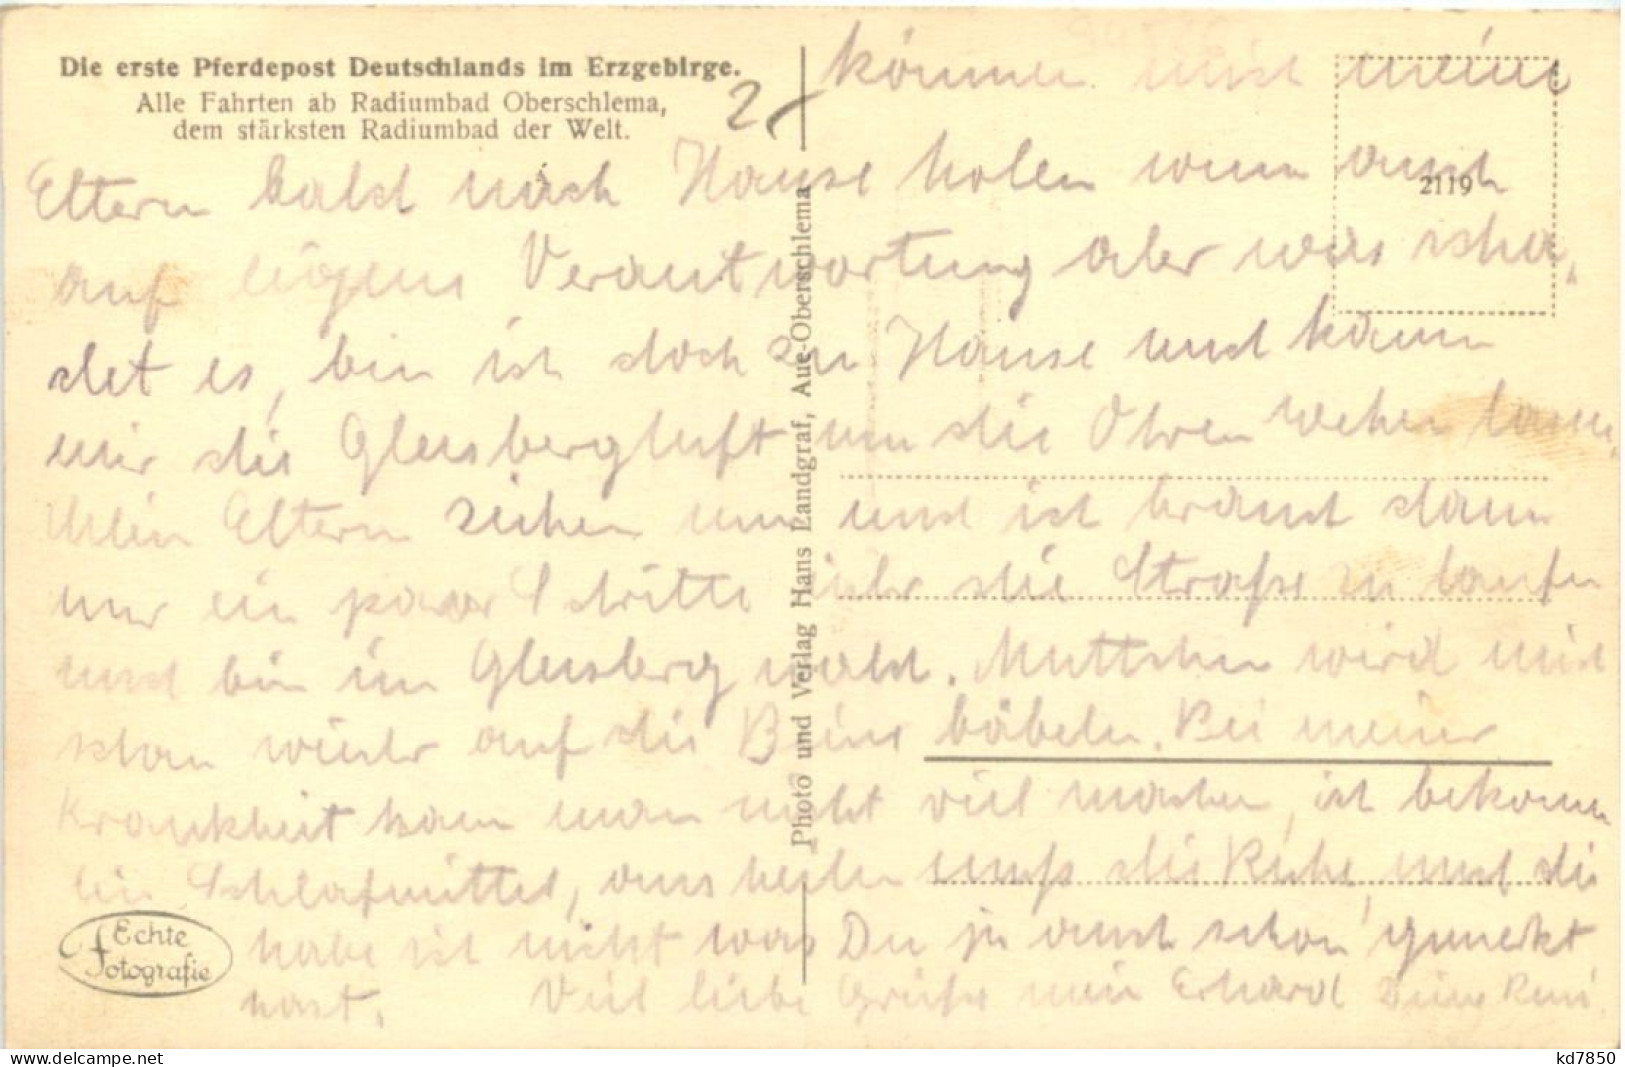 Die erste Pferdepost Deutschlands im Erzgebirge.
Alle Fahrten ab Radiumbad Oberschlema,
dem stärksten Radiumbad der Welt.
2
können mich meine
Eltern bald nach Hause holen wenn auch
auf eigene Verantwortung aber was scha-
det es, bin ich doch zu Hause und kann
mir die Gleisbergluft um die Ohren wehen lassen.
Mein Eltern ziehen um und ich brauch dann
nur ein paar Schritte über die Straße zu laufen
und bin im Gleisbergwald. Muttchen wird mich
schon wieder auf die Beine bäbeln. Bei meiner
Krankheit kann man nicht viel machen, ich bekomme
ein Schlafmittel, ausheilen muß die Ruhe, und die
habe ich nicht was Du ja auch schon gemerkt
hast. Viel liebe Grüße mein Erhard Deine
2119
Photo und Verlag Hans Landgraf, Aue-Oberschlema
Echte
Fotografie
www.delcampe.net
kd7850